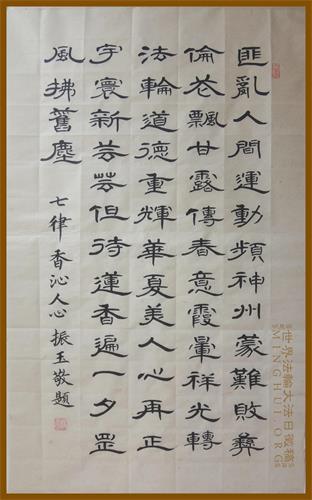 匪亂人間運動頻神州蒙難敗彝
倫花飄甘露傳春意霞暈祥光轉
法輪道德重輝華夏美人心再正
宇寰新芸芸但待蓮香遍一夕罡
風拂舊塵
七律香沁人心 振玉敬題
世界法輪大法日徵稿
MINGHUI.ORG